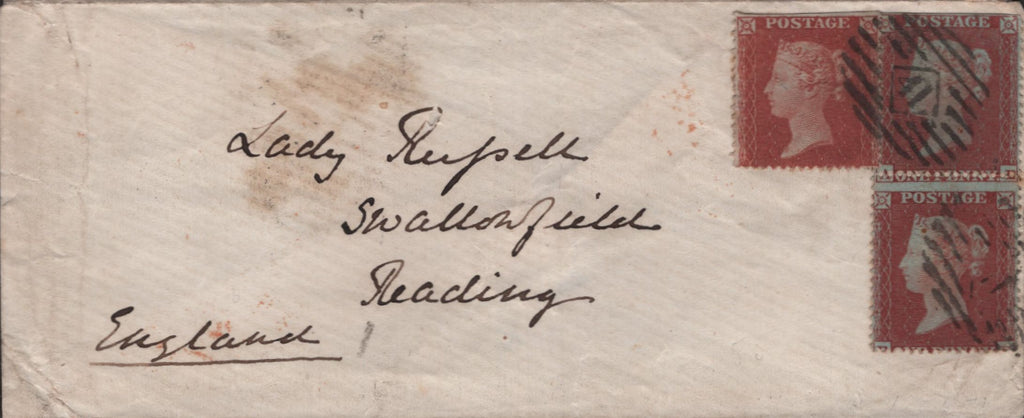 POSTAGE POSTAGE
A ONE PENNY
POSTAGE
Lady Rufsell
Swallowfield
Reading
England